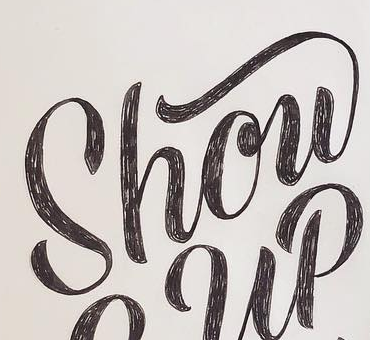 Show
Up